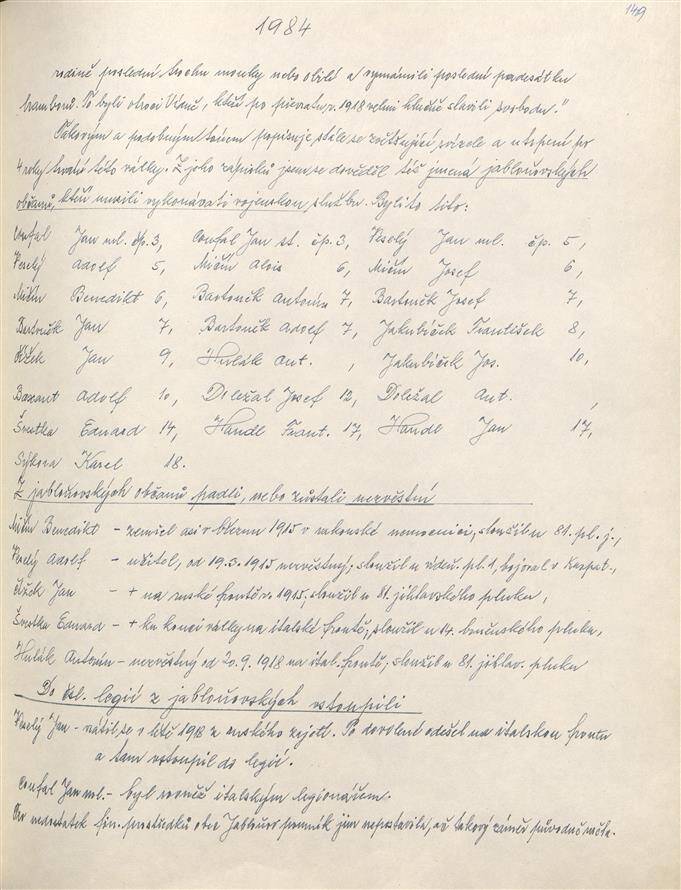 149
1984
rodině poslední trochu mouky nebo obilí a vymámili poslední padesátku
brambor. To byli otroci Vídně, kteří po převratu v. 1918 velmi hlučně slavili svobodu."
Takovým a podobným tónem popisuje stále se zvětšující svízele a utrpení po
4 roky trvání této války. Z jeho zápisků jsem se dověděl též jmená jabloňovských
občanů, kteří musili vykonávati vojenskou službu. Byli to tito:
Confal Jan ml. čp. 3, Confal Jan st. čp. 3, Veselý Jan ml. čp. 5,
Veselý Adolf 5, Mičín Alois 6, Mičín Josef 6,
Mičín Benedikt 6, Bartoněk Antonín 7, Bartoněk Josef 7,
Bartoněk Jan 7, Bartoněk Adolf 7, Jakubíček František 8,
Čížek Jan 9, Hulák Ant. , Jakubíček Jos. 10,
Bazant Adolf 10, Doležal Josef 12, Doležal Ant. ,
Švestka Eduard 14, Handl Frant. 17, Handl Jan 17,
Sýkora Karel 18.
Z jabloňovských občanů padli, nebo zůstali nezvěstní
Mičín Benedikt – zemřel asi v březnu 1915 v rakouské nemocnici, sloužil u 81. pl. j.,
Veselý Adolf – učitel, od 19.3.1915 nezvěstný, sloužil u vídeň. pl. 1, bojoval v Karpat.,
Čížek Jan – + na ruské frontě r. 1915, sloužil u 81. jihlavského pluku,
Švestka Eduard – + ku konci války na italské frontě, sloužil u 14. lineckého pluku,
Hulák Antonín – nezvěstný od 20.9.1918 na ital. frontě, sloužil u 81. jihlav. pluku
Do čsl. legií z jabloňovských vstoupili
Veselý Jan – vrátil se v létě 1918 z ruského zajetí. Po dovolené odešel na italskou frontu
a tam vstoupil do legií.
Confal Jan ml. – byl rovněž italským legionářem.
Pro nedostatek fin. prostředků obec Jabloňov pomník jim nepostavila, ač takový záměr původně měla.